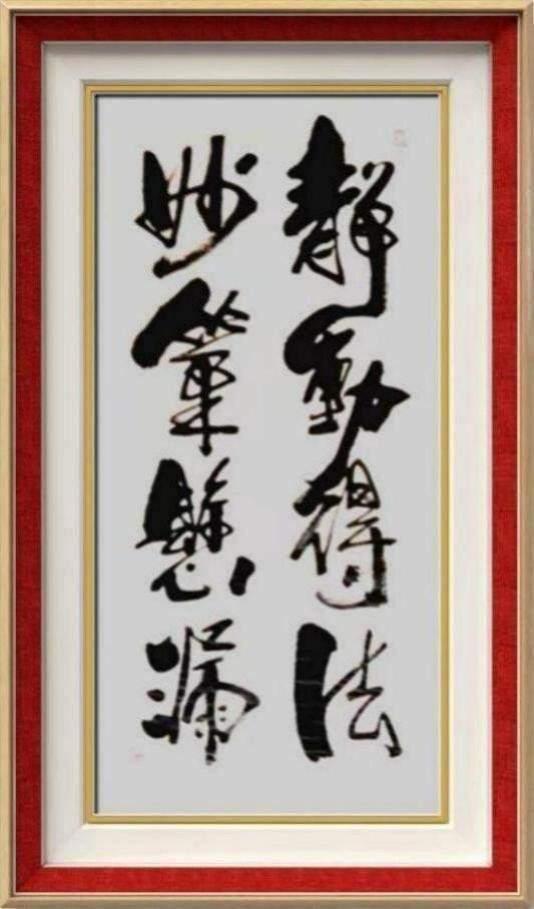 靜動得法
妙筆懸漏